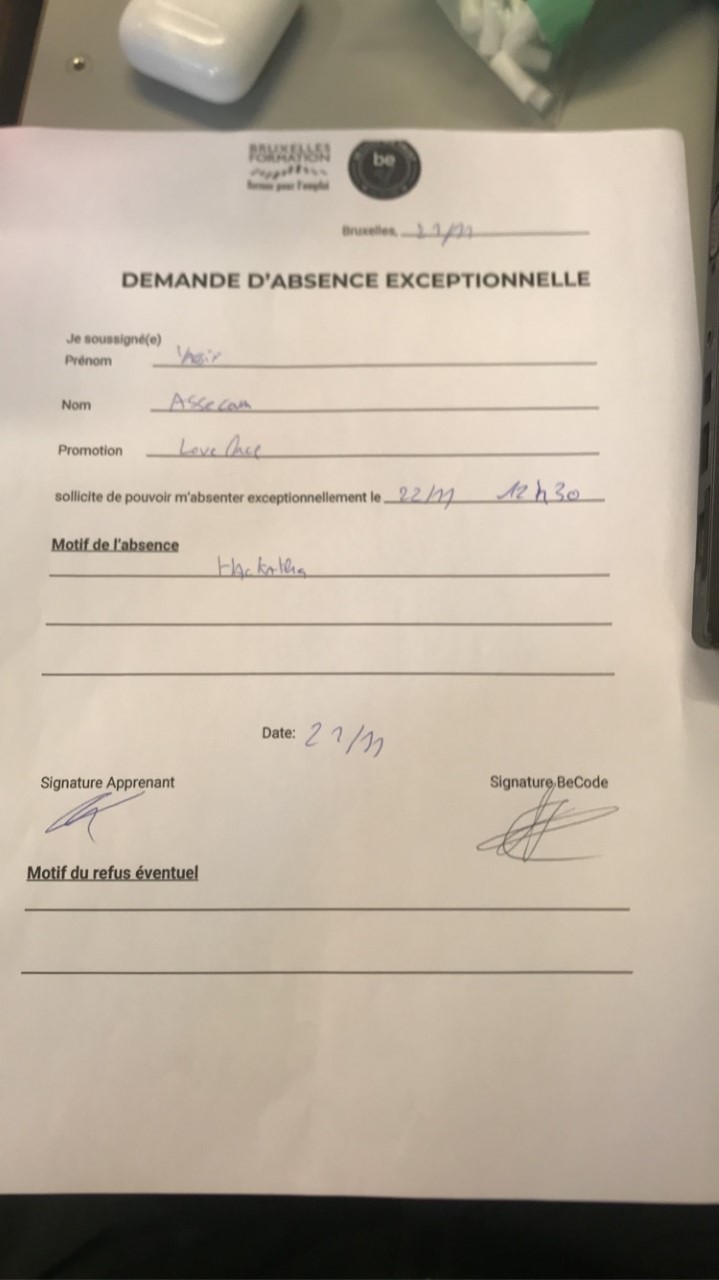 BRUXELLES
FORMATION
Former pour l'emploi
be
Bruxelles, 21/11
DEMANDE D'ABSENCE EXCEPTIONNELLE
Je soussigné(e)
Prénom
Nom Assecam
Promotion Love
sollicite de pouvoir m'absenter exceptionnellement le 22/11 12h30
Motif de l'absence
Hackathon
Date: 21/11
Signature Apprenant
Signature BeCode
Motif du refus éventuel